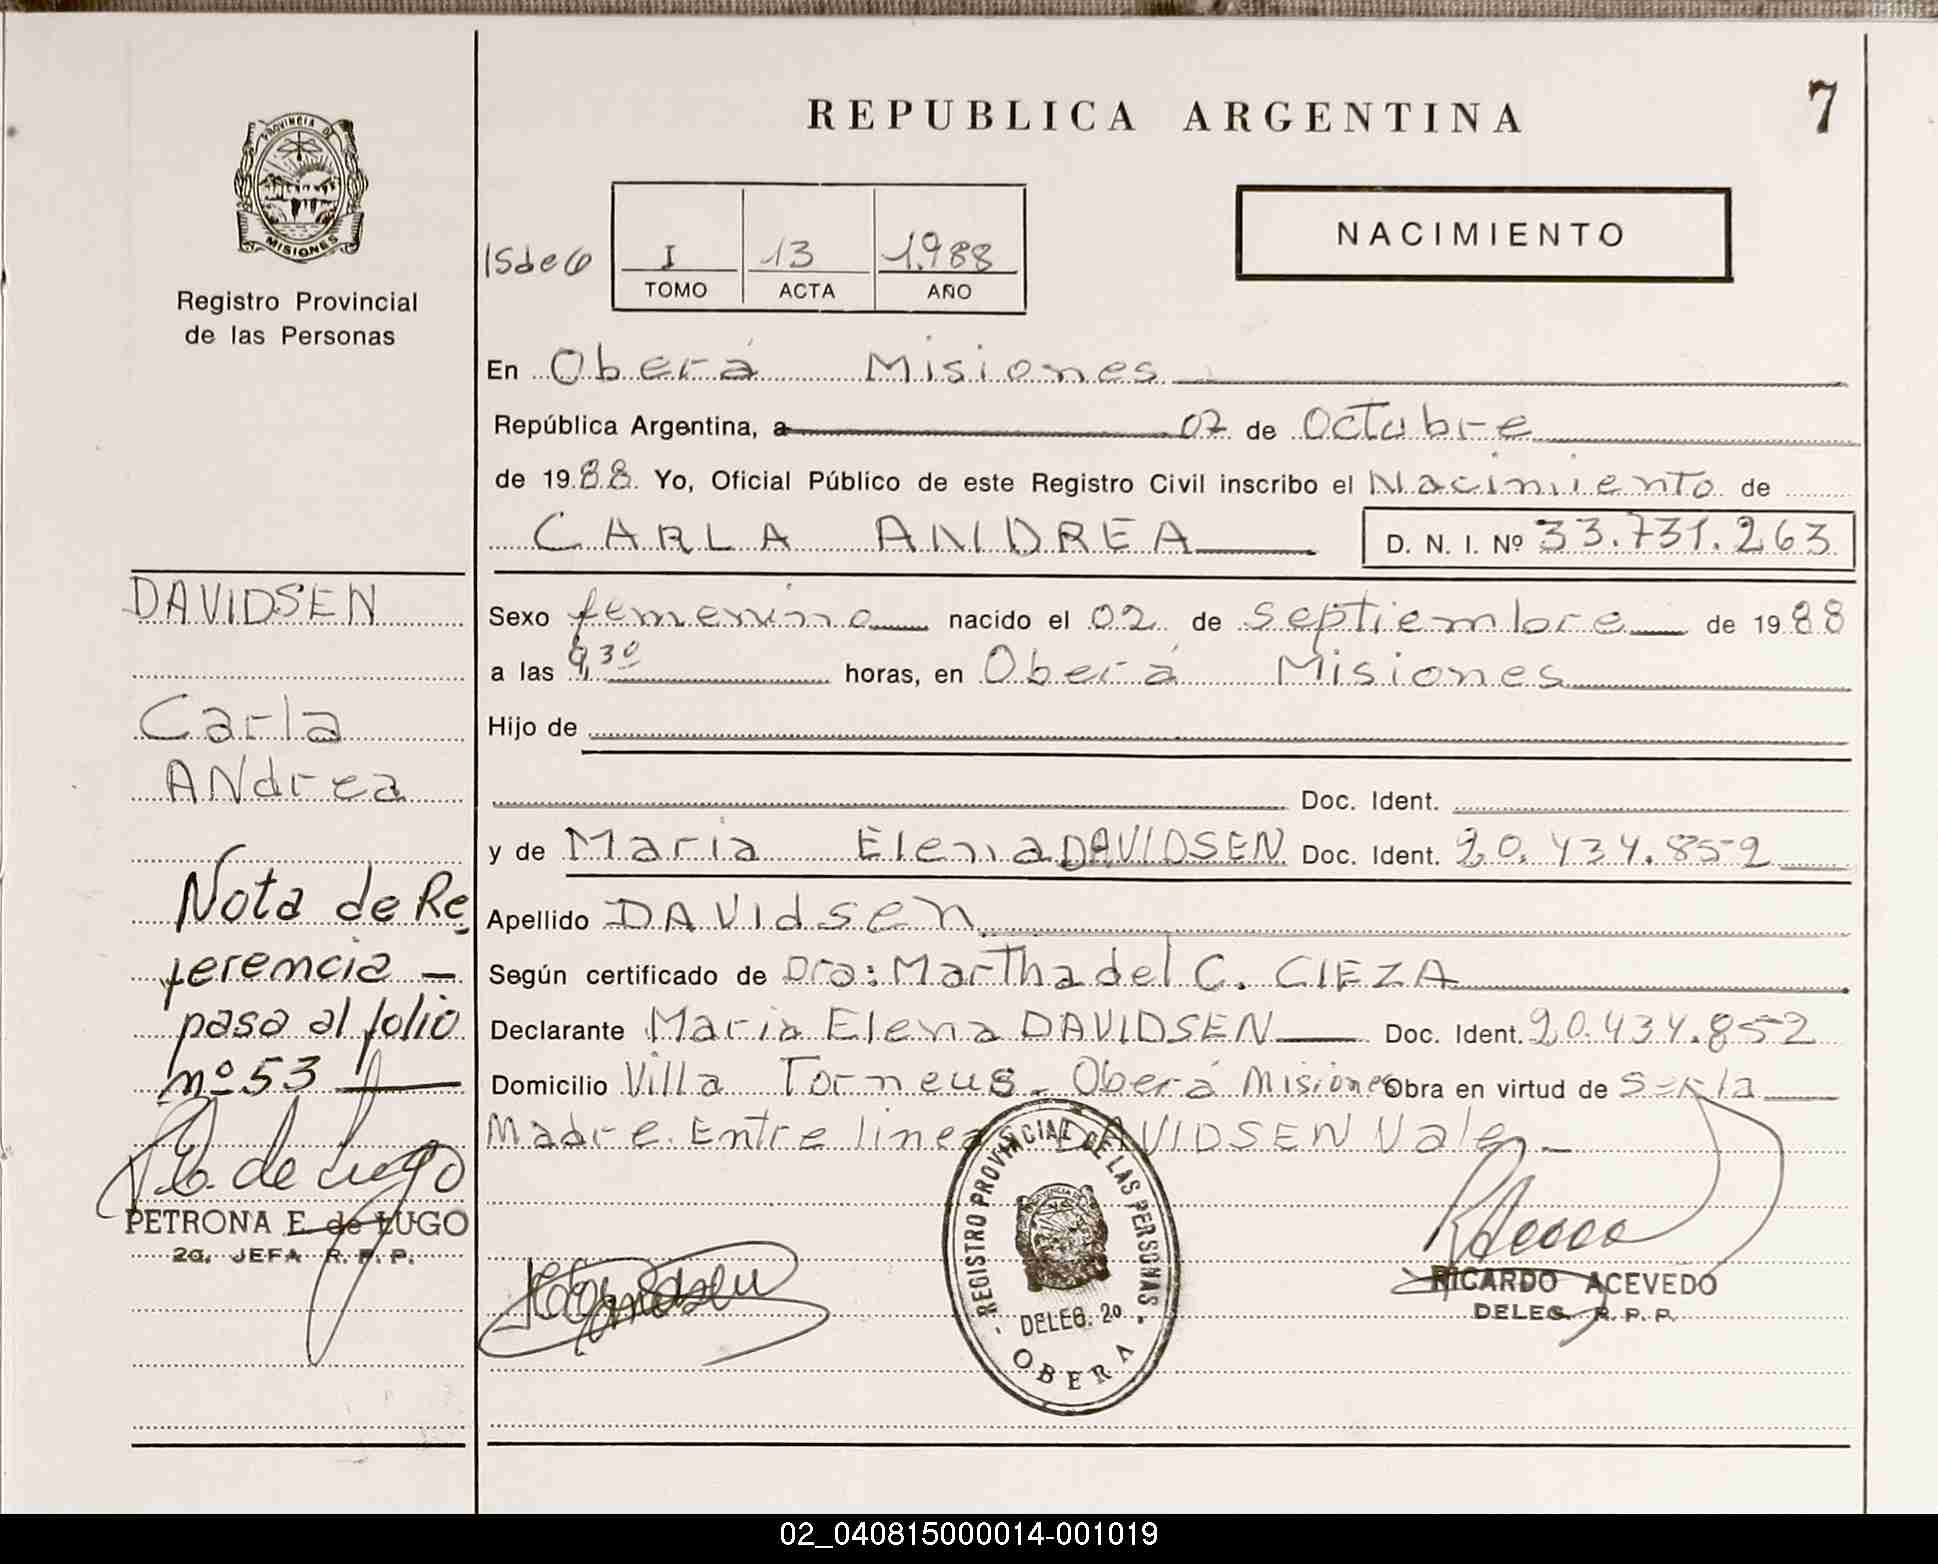 REPUBLICA ARGENTINA
7
PROVINCIA DE
MISIONES
Registro Provincial
de las Personas
I 13 1.988
TOMO ACTA AÑO
NACIMIENTO
En Oberá Misiones
República Argentina, a 02 de Octubre
de 1988 Yo, Oficial Público de este Registro Civil inscribo el Nacimiento de
CARLA ANDREA D. N. I. Nº 33.731.263
Sexo femenino nacido el 02 de septiembre de 1988
a las 9,30 horas, en Oberá Misiones
Hijo de
Doc. Ident.
y de Maria Elena DAVIDSEN Doc. Ident. 20.434.852
Apellido DAVIdsen
Según certificado de Dra: Martha del C. CIEZA
Declarante Maria Elena DAVIDSEN Doc. Ident. 20.434.852
Domicilio Villa Torneus. Oberá Misiones Obra en virtud de ser la
Madre. Entre linea DAVIDSEN Vale.
DAVIDSEN
Carla
ANdrea
Nota de Re
ferencia —
pasa al folio
nº 53
E. de Lugo
PETRONA E. de LUGO
2a. JEFA R. P. P.
REGISTRO PROVINCIAL DE LAS PERSONAS
DELEG. 2ª
OBERA
RICARDO ACEVEDO
DELEG. R. P. P.
02_040815000014-001019